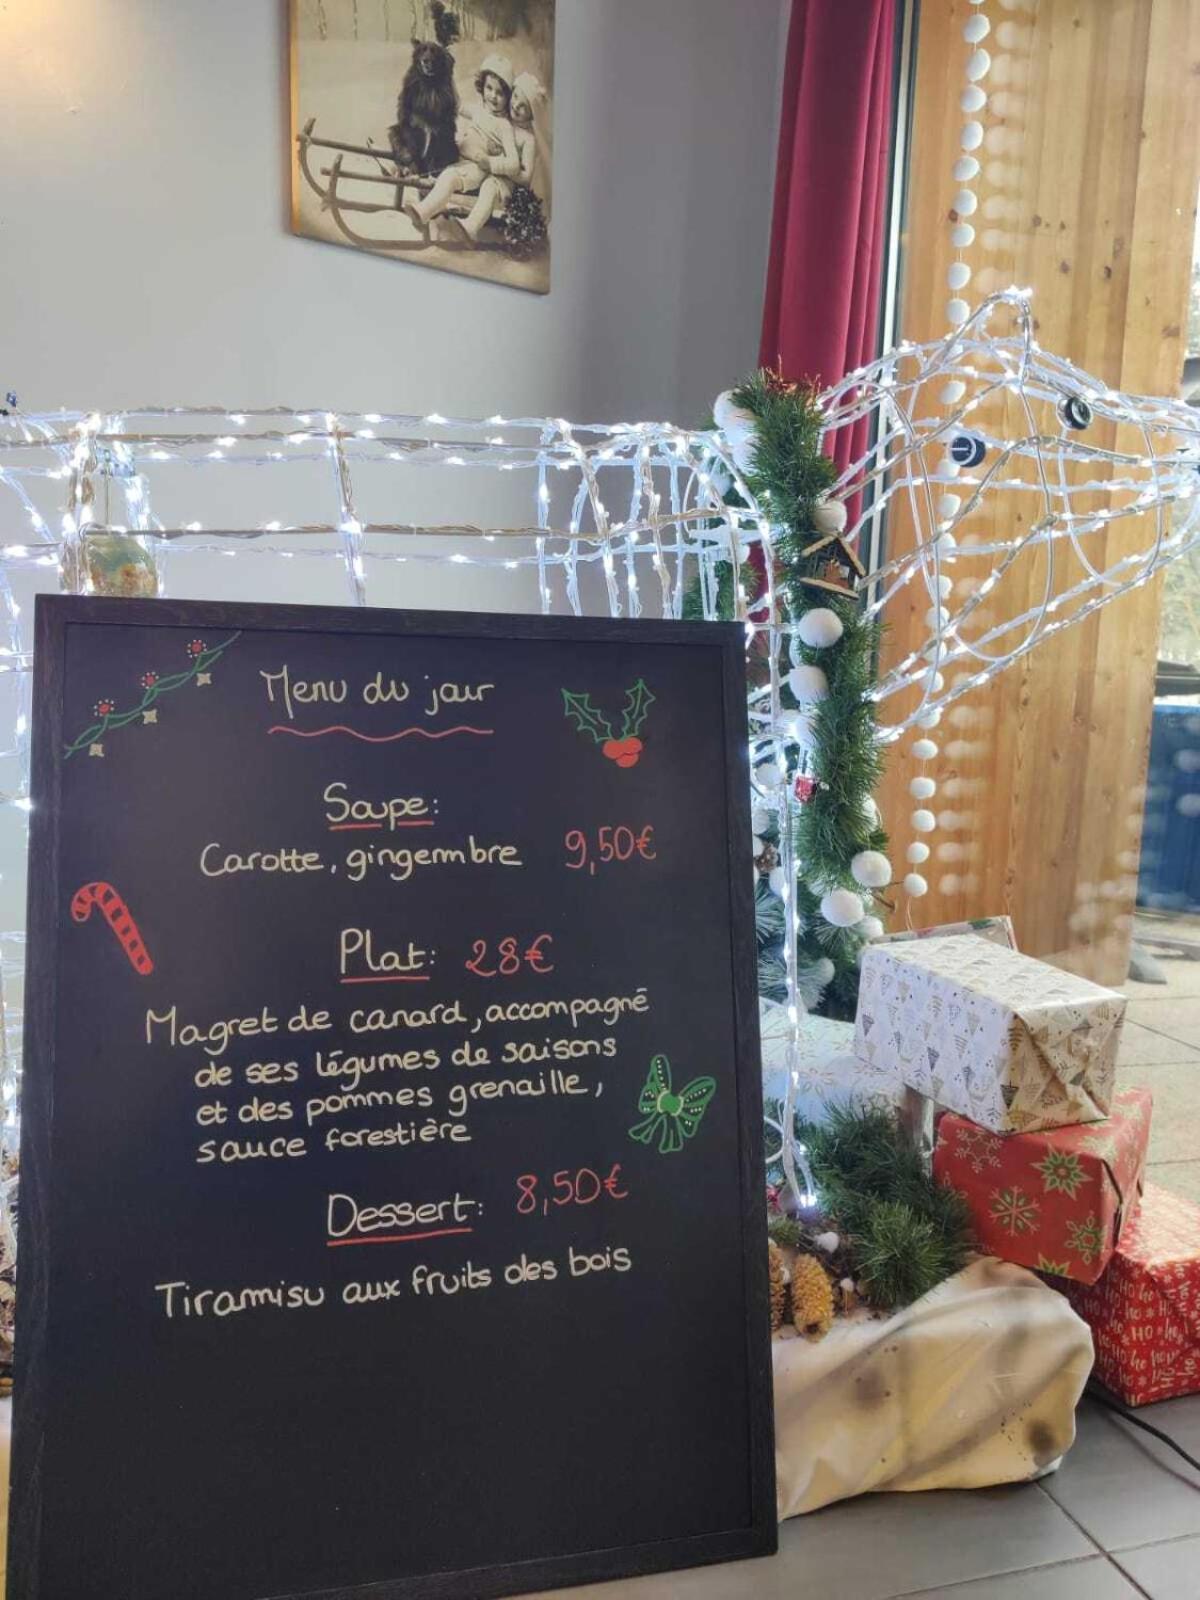 Menu du jour
Soupe:
Carotte, gingembre 9,50€
Plat: 28€
Magret de canard, accompagné
de ses légumes de saisons
et des pommes grenaille,
sauce forestière
Dessert: 8,50€
Tiramisu aux fruits des bois
HO HO HO